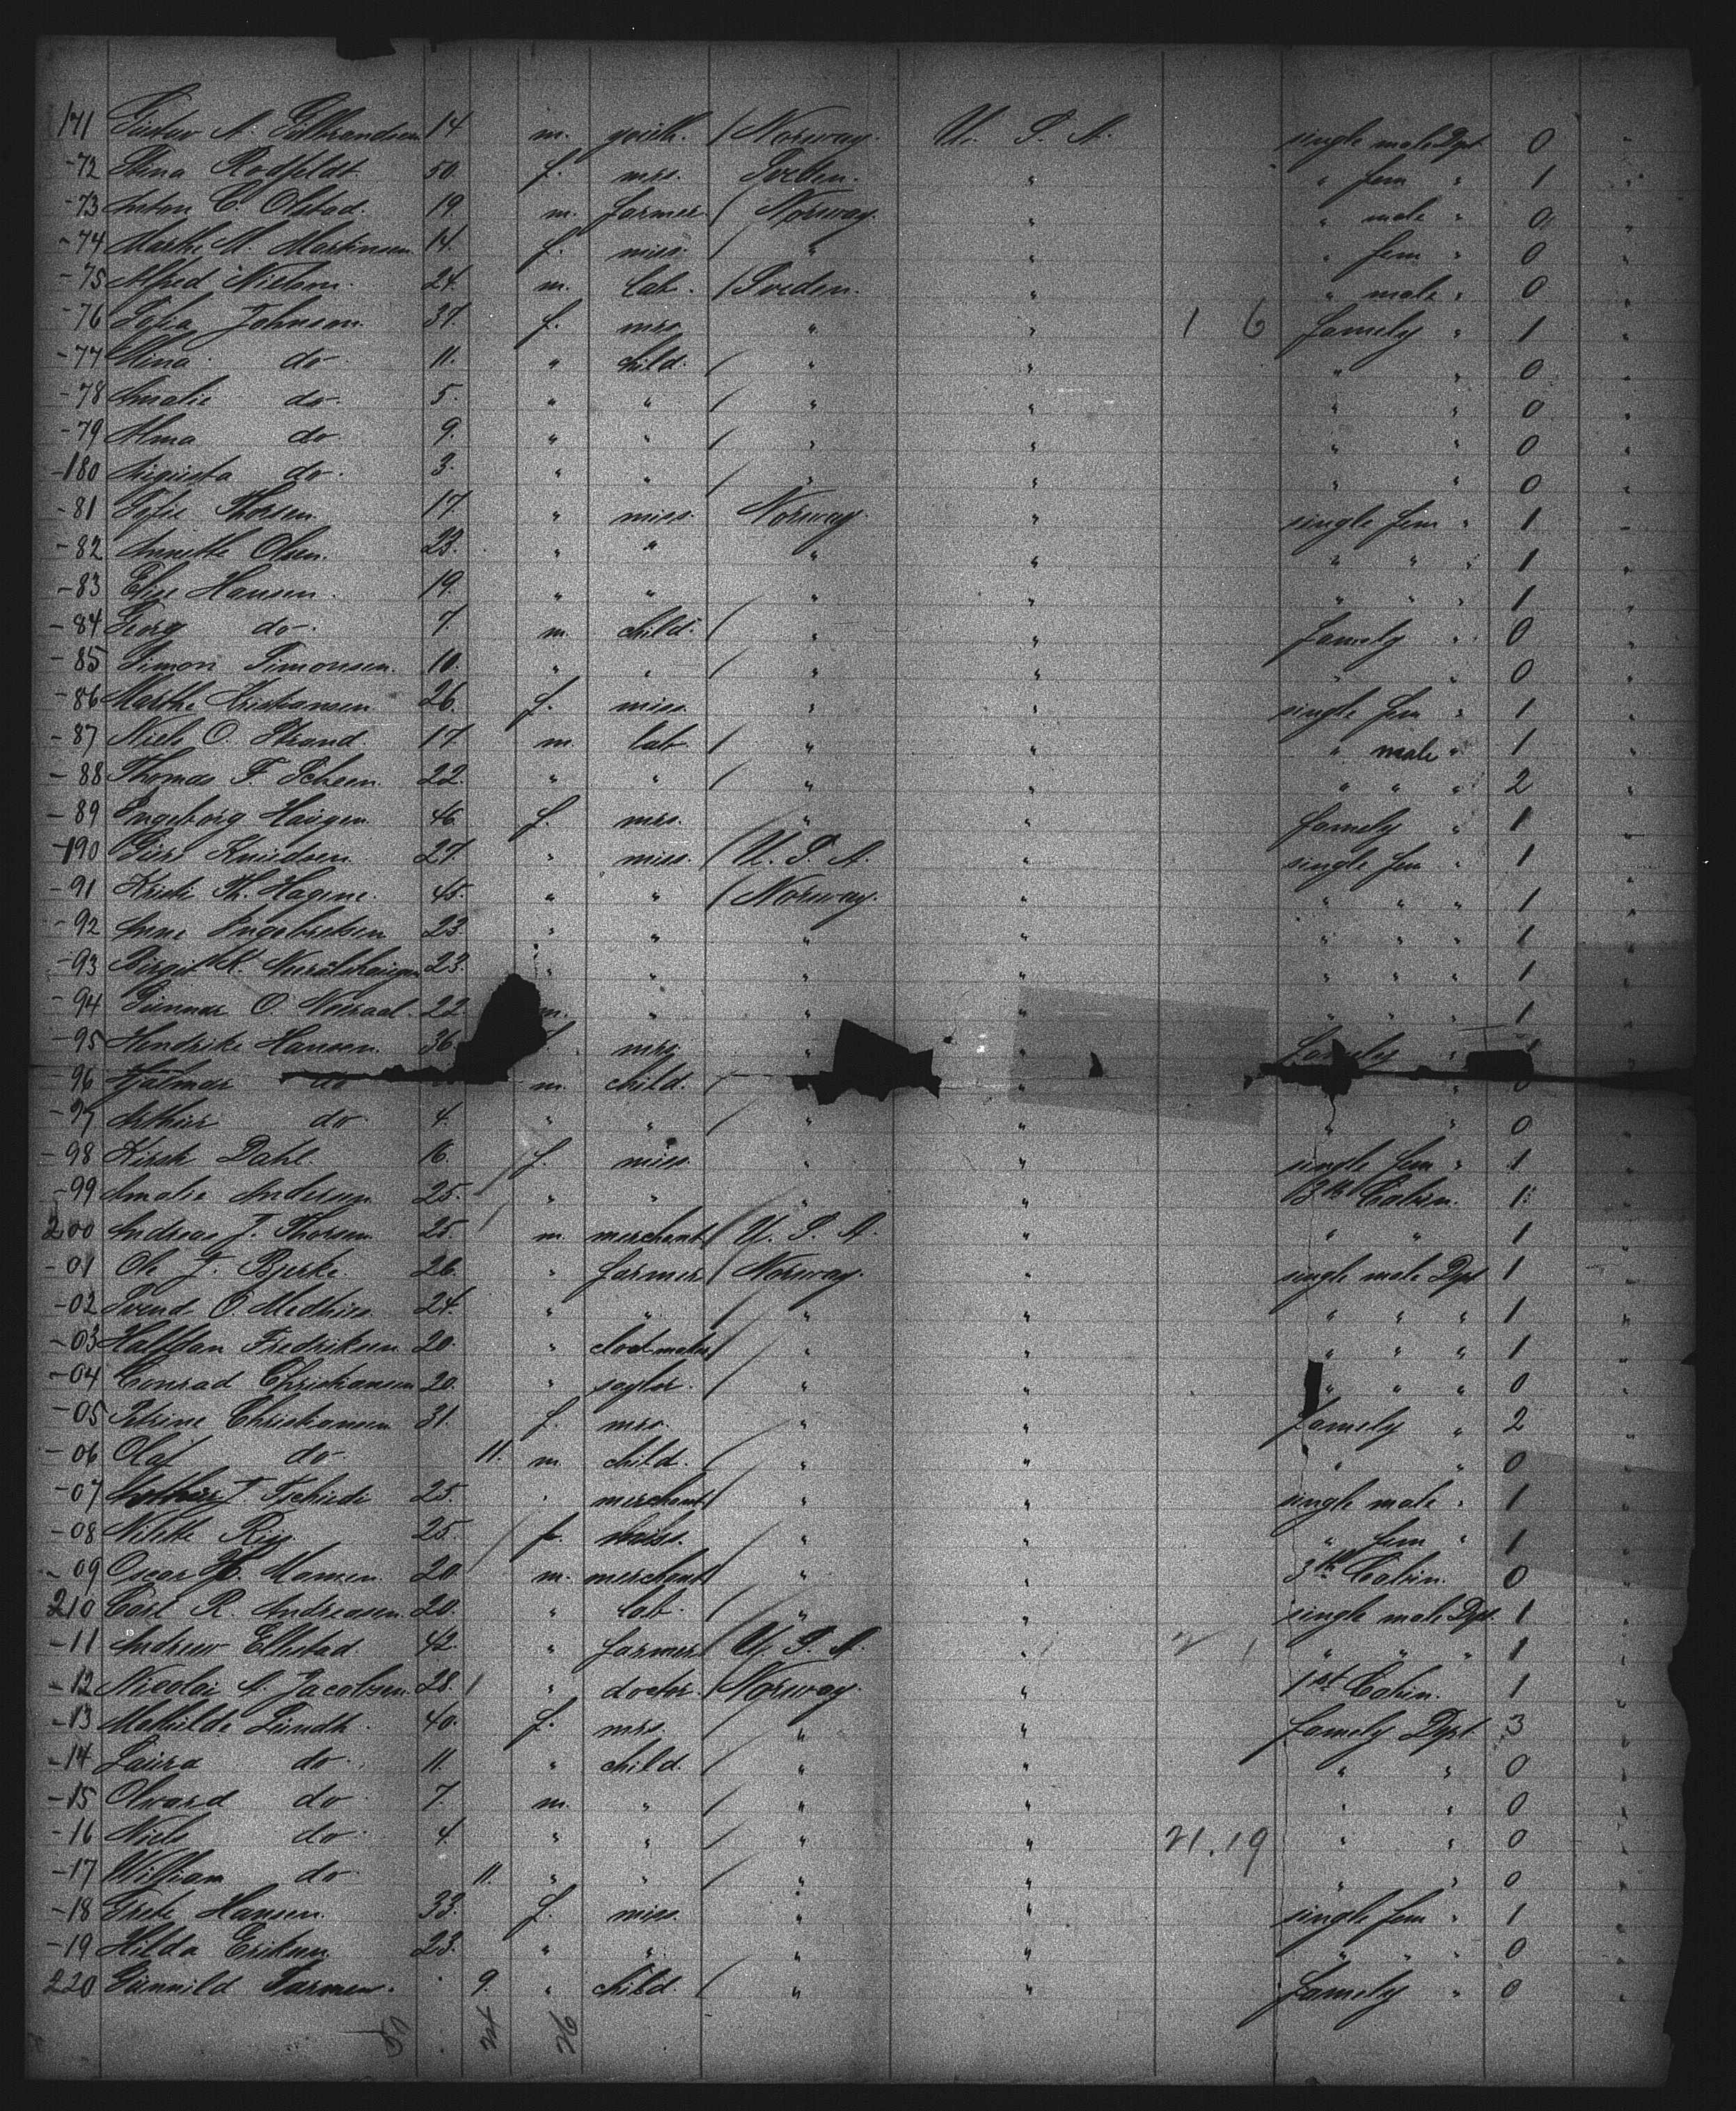 171 Gustav A. Gulbrandsen 14 m. youth. / Norway. U. S. A. single male Dpt 0 "
-72 Stina Rodfeldt. 50. f. mrs. Sveden. " " fem " 1 "
-73 Anton C. Olstad. 19. m. farmer. / Norway. " " male " 0 "
-74 Marthe M. Martinsen 14. f. miss. / " " " fem " 0 "
-75 Alfred Nielson. 24. m. lab. / Sveden. " " male " 0 "
-76 Sofia Johnson. 37. f. mrs " " 1 6 famely " 1 "
-77 Mina do 11. " child. / " " " " 0 "
-78 Amalie do. 5. " " / " " " " 0 "
-79 Alma do. 9. " " / " " " " 0 "
-180 Augusta do. 3. " " / " " " " 0 "
-81 Sofie Thorsen 17. " miss. Norway. " single fem " 1 "
-82 Annette Olsen. 23. " " " " " " " 1 "
-83 Elise Hansen. 19. " " " " " " " 1 "
-84 Georg do. 7. m. child. / " " famely " 0 "
-85 Simon Simonsen. 10. " " / " " " " 0 "
-86 Marthe Kristiansen 26. f. miss. " " single fem " 1 "
-87 Niels O. Strand. 17. m. lab. / " " " male " 1 "
-88 Thomas F. Scheen. 22. " " / " " " " " 2 "
-89 Ingeborg Haugen 46. f. mrs. " " famely " 1 "
-190 Knudsen 27. " miss. / U. S. A. " single fem " 1 "
-91 Kristi Th. Hagene. 45. " " / Norway. " " " " 1 "
-92 Anne Engebretsen 23. " " " " " " " 1 "
-93 Birgit K. 23. " " " " " " " 1 "
-94 Gunnar O. 22. m. " " " " " " 1 "
-95 Hendrike Hansen. 36. mrs " famely " "
-96 Hjalmar do m. child. / " " 0
-97 Arthur do 4. " " / " " " " 0 "
-98 Kirsti Dahl. 16. f. miss. " " single fem " 1 "
-99 Amalie Andersen 25. " " " " 3th Cabin. 1 "
200 Andreas J. Thorsen 25. m. merchant / U. S. A. " " " 1 "
-01 Ole J. Bjerke. 26. " farmer / Norway. " single male Dpt 1 "
-02 Svend O. 24. " " / " " " " " 1 "
-03 Halfdan Fredriksen 20. " / " " " " " 1 "
-04 Conrad Christiansen 20. " saylor. / " " " " " 0 "
-05 Petrine Christiansen 31. f. mrs. " " famely " 2 "
-06 Olaf do. 11. m. child. / " " " " 0 "
-07 J. 25. " merchant / " " single male " 1 "
-08 25. f. miss. " " " fem " 1 "
-09 Oscar H. Mamen. 20. m. merchant / " " 3th Cabin. 0 "
210 Carl R. Andreasen. 20. " lab. / " " single male Dpt. 1 "
-11 Andrew Ellestad. 42. " farmer / U. S. A. " " " " 1 "
-12 Nicolai A. Jacobsen. 28. " doctor. / Norway. " 1st Cabin. 1 "
-13 Mathilde Lundh. 40. f. mrs / " " famely Dpt. 3 "
-14 Laura do. 11. " child. / " " " " 0 "
-15 do 7. m. " / " " " " 0 "
-16 Niels do. 4. " " / " " 21.19 " " 0 "
-17 William do. 11. " " / " " " " 0 "
-18 Grete Hansen. 33. f. miss. " " single fem " 1 "
-19 Hilda Eriksen 23. " " " " " " " 0 "
220 Gunnild 9. " child. / " " famely " 0 "
24 26